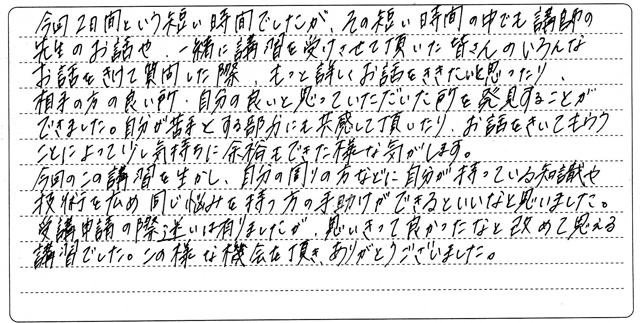 今回2日間という短い時間でしたが、その短い時間の中でも講師の
先生のお話や、一緒に講習を受けさせて頂いた皆さんのいろんな
お話をきけて質問した際、もっと詳しくお話をききたいと思ったり、
相手の方の良い所・自分の良いと思っていただいた所を発見することが
できました。自分が苦手とする部分にも共感して頂いたり、お話をきいてもらう
ことによって少し気持ちに余裕もできた様な気がします。
今回のこの講習を生かし、自分の周りの方などに自分が持っている知識や
技術を広め同じ悩みを持つ方の手助けができるといいなと思いました。
受講申請の際迷いは有りましたが、思いきって良かったなと改めて思える
講習でした。この様な機会を頂きありがとうございました。